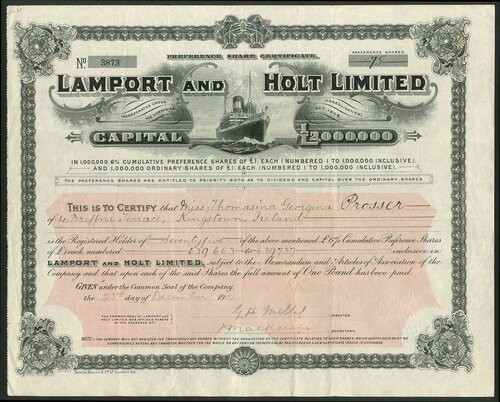 PREFERENCE SHARE CERTIFICATE.
PREFERENCE SHARES.
No 3873
75
LAMPORT AND HOLT LIMITED
INCORPORATED UNDER THE COMPANIES (CONSOLIDATION) ACT, 1908
CAPITAL £2,000,000
IN 1,000,000 6% CUMULATIVE PREFERENCE SHARES OF £1. EACH (NUMBERED 1 TO 1,000,000 INCLUSIVE),
AND 1,000,000 ORDINARY SHARES OF £1. EACH (NUMBERED 1 TO 1,000,000 INCLUSIVE).
THE PREFERENCE SHARES ARE ENTITLED TO PRIORITY BOTH AS TO DIVIDEND AND CAPITAL OVER THE ORDINARY SHARES
THIS IS TO CERTIFY that Miss Thomasina Georgina Prosser
of 4, Breffni Terrace, Kingstown, Ireland
is the Registered Holder of seventy five of the above mentioned £6% Cumulative Preference Shares
of £1 each numbered 639663 to 639737 inclusive in
LAMPORT AND HOLT LIMITED, subject to the Memorandum and Articles of Association of the
Company and that upon each of the said Shares the full amount of One Pound has been paid.
GIVEN under the Common Seal of the Company
the day of December
THE COMMON SEAL OF LAMPORT AND
HOLT LIMITED WAS AFFIXED HERETO
IN THE PRESENCE OF:
DIRECTOR.
SECRETARY.
NOTE:- THE COMPANY WILL NOT REGISTER THE TRANSFER OF ANY SHARES WITHOUT THE PRODUCTION OF THE CERTIFICATE RELATING TO SUCH SHARES, WHICH CERTIFICATE MUST BE
SURRENDERED BEFORE ANY TRANSFER, WHETHER FOR THE WHOLE OR ANY PORTION THEREOF CAN BE REGISTERED OR CERTIFICATE ISSUED IN EXCHANGE.